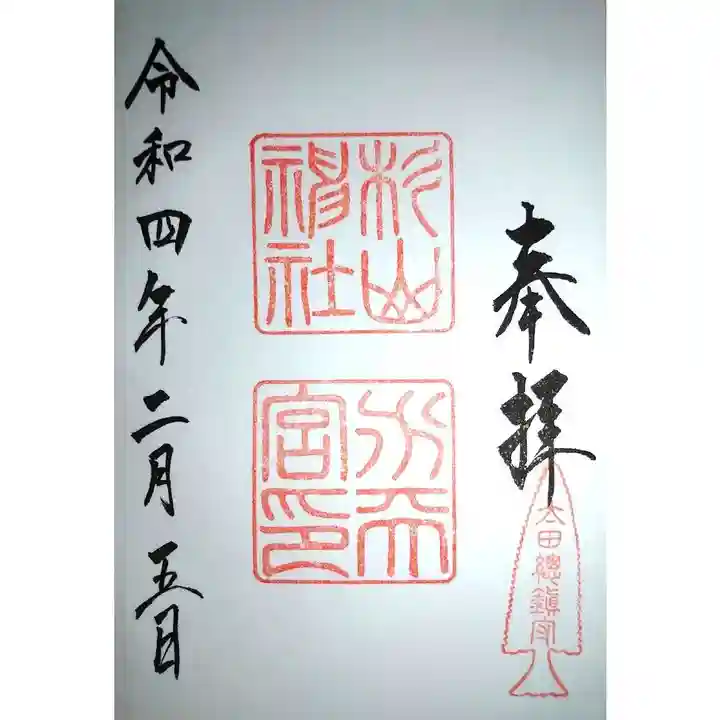 奉拝
太田總鎮守
杉山
神社
水天
宮印
令和四年二月五日